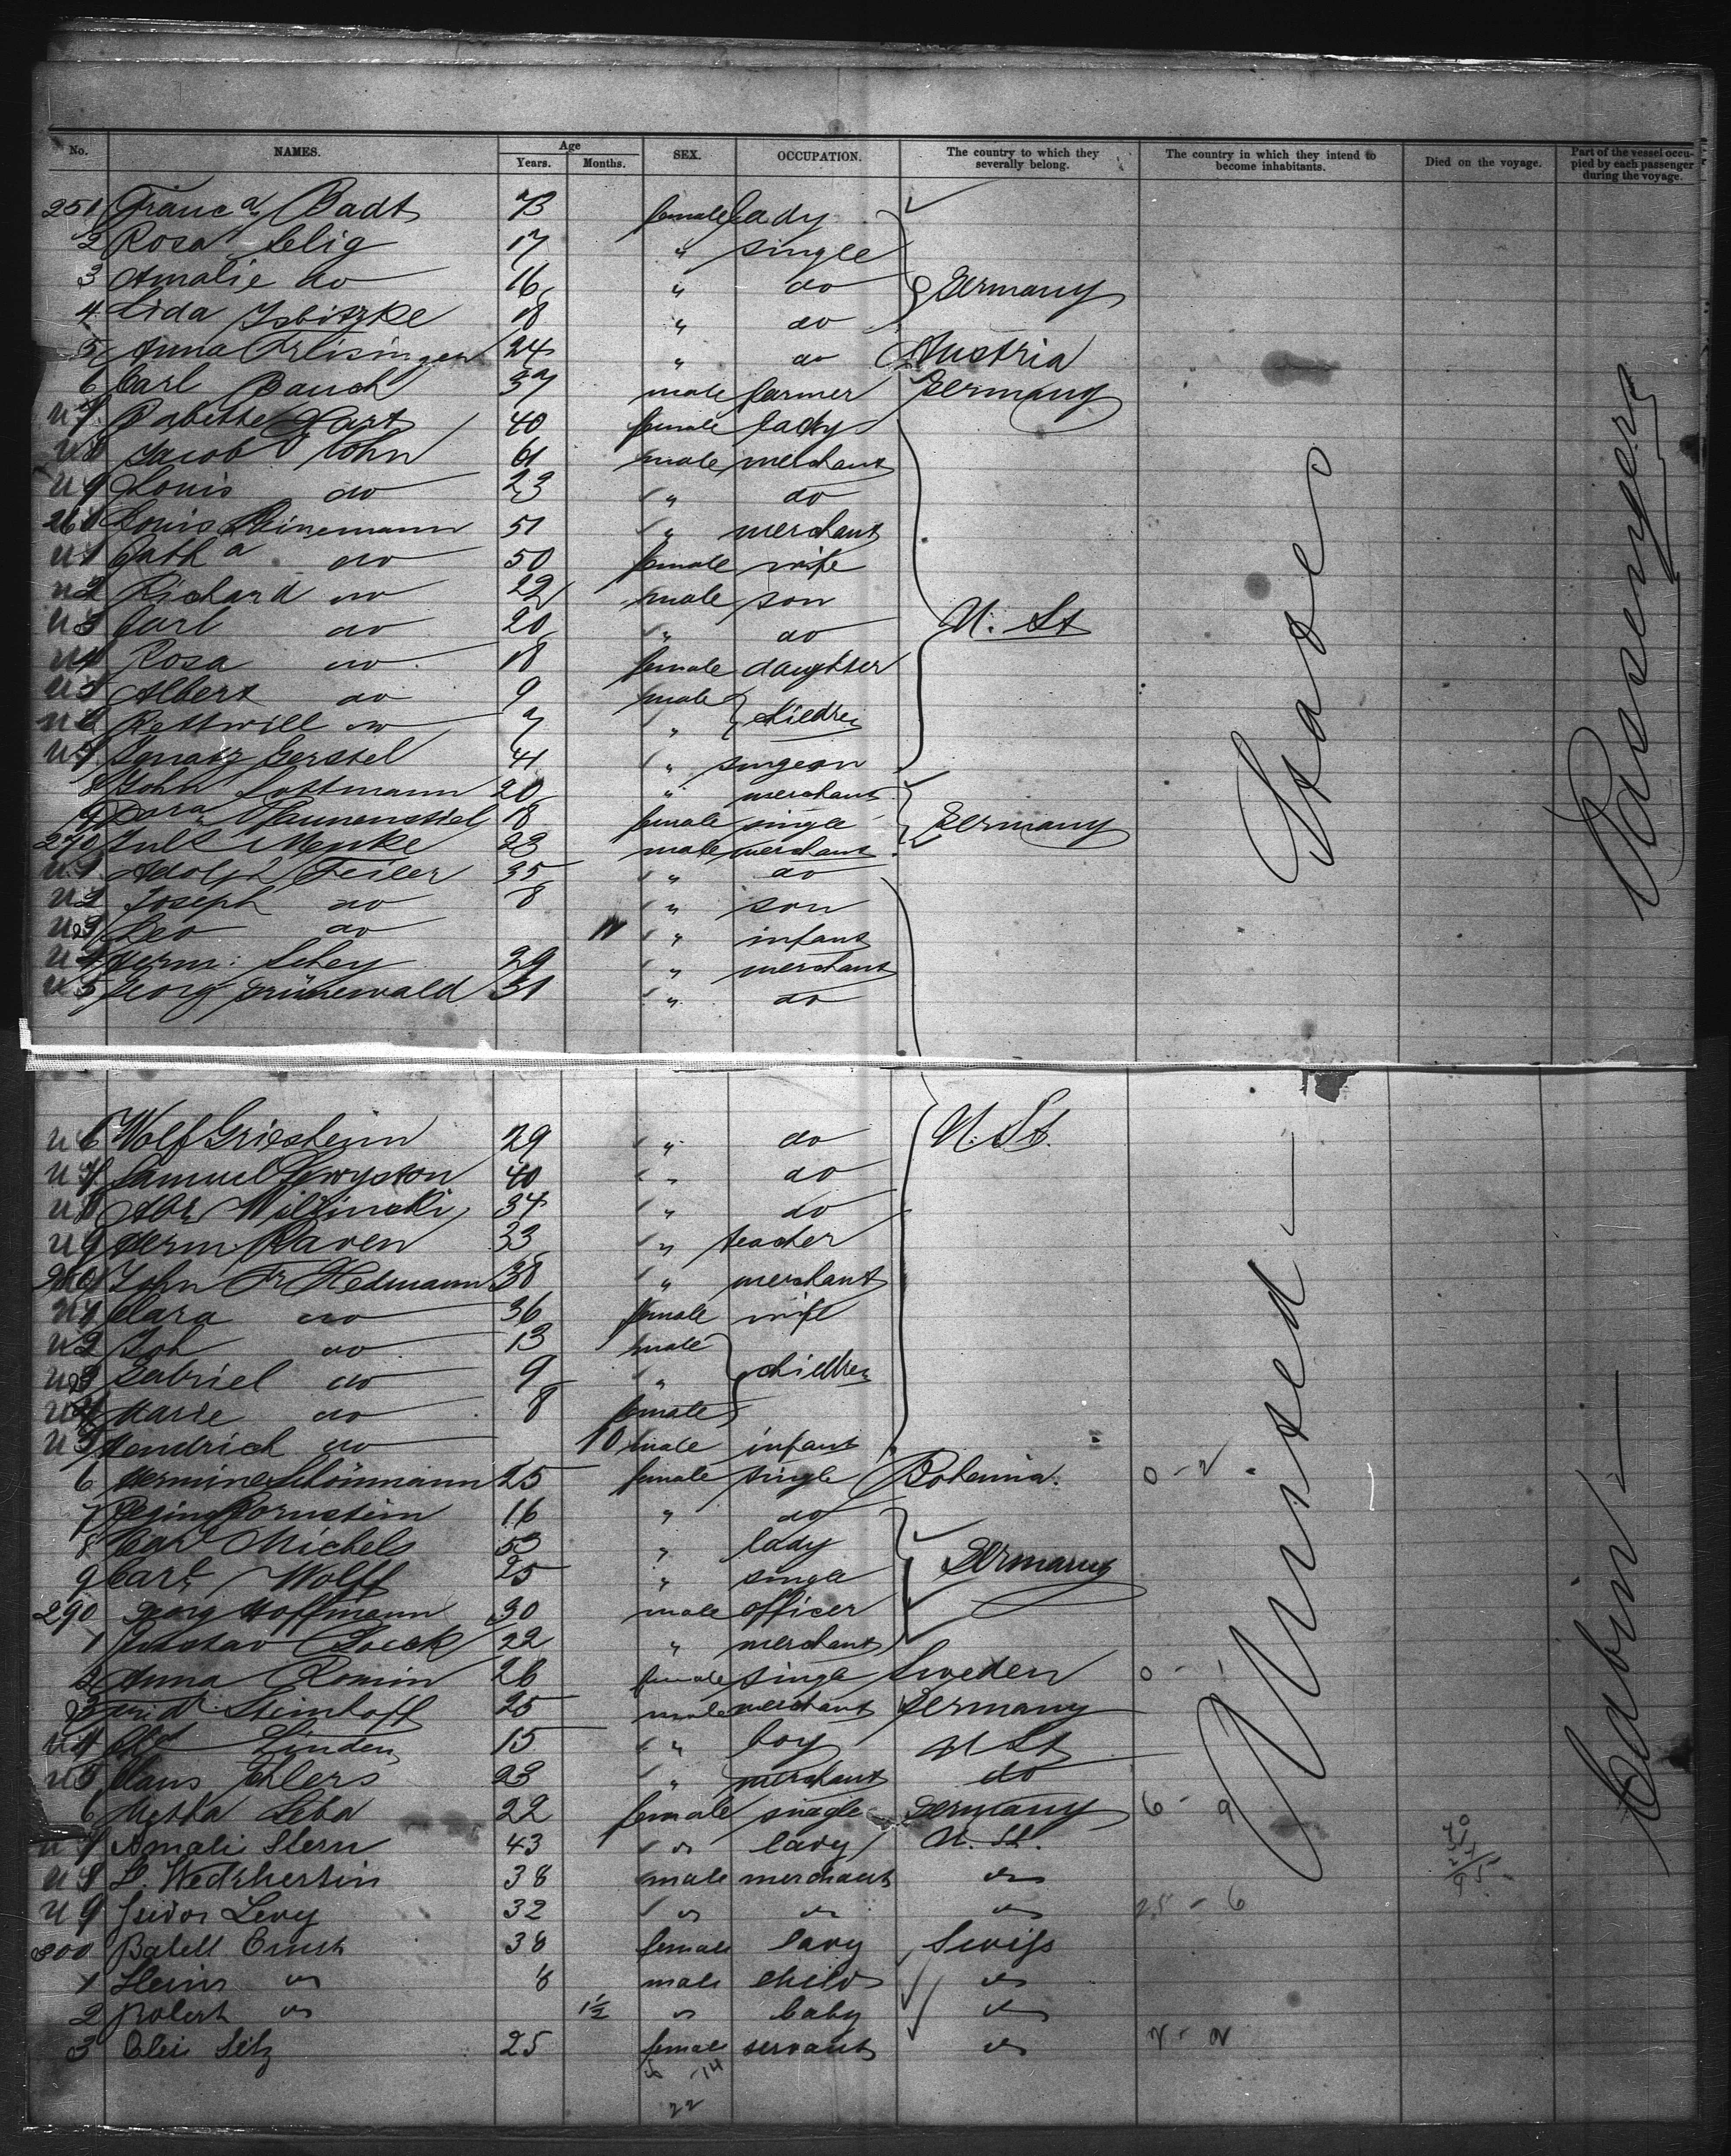 No. NAMES. Age Years. Months. SEX. OCCUPATION. The country to which they severally belong. The country in which they intend to become inhabitants. Died on the voyage. Part of the vessel occupied by each passenger during the voyage.
251 Franca Badt 73 female lady
2 Rosa Selig 17 " single
3 Amalie do 16 " do Germany
4 Lida 18 " do
5 Anna 24 " do Austria
6 Carl Bauch 37 male farmer Germany
U 7 Babette Hart 40 female lady
U 8 Jacob Cohn 61 male merchant
U 9 Louis do 23 " do
260 Louis Steinemann 51 " merchant
U 1 Catha do 50 female wife
U 2 Richard do 22 male son U. St
U 3 Carl do 20 " do
U 4 Rosa do 18 female daughter
U 5 Albert do 9 male
U 6 do 7 " children
U 7 Ignatz Gerstel 41 " surgeon
8 John Lottmann 20 " merchant
9 Dora Pfannenstiel 18 female single Germany
270 Menke 23 male merchant
U 1 Adolph Feiler 35 " do
U 2 Joseph do 8 " son
U 3 Leo do 11 " infant
U 4 Herm: Schey 29 " merchant
U 5 Georg Grünewald 31 " do
U 6 Wolf Griesheim 29 " do U. St.
U 7 Samuel Lewyson 40 " do
U 8 Abr. Wilzinski 34 " do
U 9 Herm. Raven 33 " teacher
280 John Fr Hedmann 38 " merchant
U 1 Clara do 36 female wife
U 2 Joh do 13 male
U 3 Gabriel do 9 " children
U 4 Marie do 8 female
U 5 Hendrich do 10 male infant
6 Hermine Schönmann 25 female single Bohemia. 0 - 2
7 Regina Bornstein 16 " do
8 Michels 53 " lady Germany
9 Carl Wolff 25 " single
290 Georg Hoffmann 30 male officer
1 Gustav 22 " merchant
2 Anna Romin 26 female single Sweden 0 - 1
3 Fridr. Steinhoff 25 male merchant Germany
U 4 Linden 15 " boy U St
U 5 Claus Ehlers 23 " merchant do
6 Metha Seba 22 female single Germany 6 - 9
U 7 Amali Stern 43 " lady U. St.
U 8 38 male merchant do
U 9 Isidor Levy 32 do do do 25 - 6
300 Babett Ernst 38 female lady Swiss
1 do 8 male child do
2 Robert do 1½ do baby do
3 25 female servant do 2 - 2
14
22
United States
Cabin Passengers